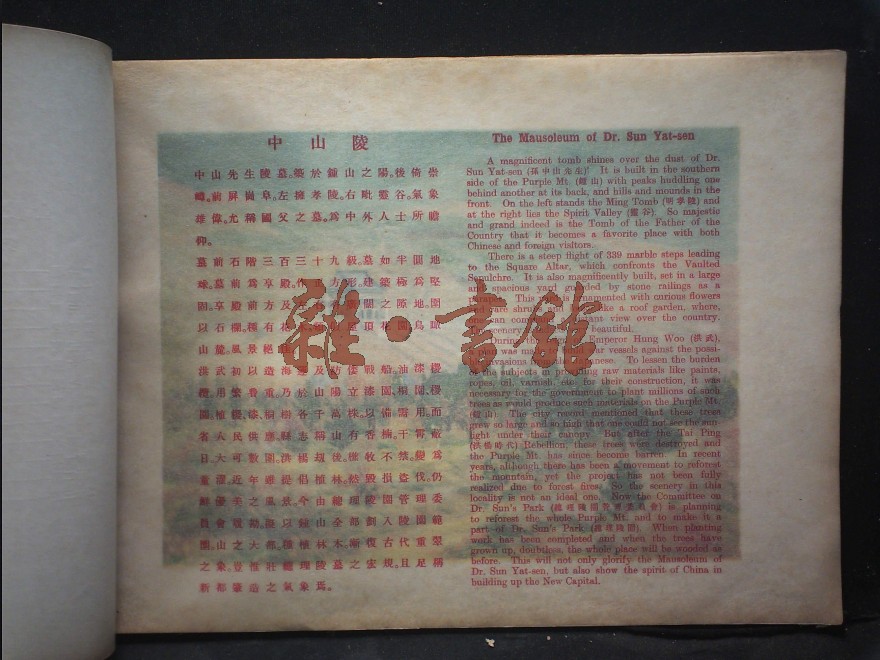 中山陵
中山先生陵墓。築於鍾山之陽。後倚崇
前屏崗阜。左擁孝陵。右毗靈谷。氣象
雄偉。尤稱國父之墓。爲中外人士所瞻
仰。
墓前石階三百三十九級。墓如半圓地
球。墓前爲享殿。方形。建築極爲堅
固。享殿前方及左之隙地。圍
以石欄。種有花頂花園。鳥瞰
山麓。風景絕
洪武初以造海及防倭戰船。油漆椶
纜。用繁費重。乃於山陽立漆園。桐園。椶
園。植椶。漆。桐樹各千萬株。以備需用。而
省人民供應。縣志稱山有香楠。干霄蔽
日。大可數圍。洪楊刼後。樵牧不禁。變爲
童濯。近年雖從倡植林。然毀損盜伐。仍
鮮優美之風景。今由總理陵園管理委
員會規劃。擬以鍾山全部劃入陵園範
圍。山之大部。種植林木。漸復古代重翠
之象。豈惟壯總理陵墓之宏規。且足稱
新都肇造之氣象焉。
The Mausoleum of Dr. Sun Yat-sen
A magnificent tomb shines over the dust of Dr.
Sun Yat-sen (孫中山先生)! It is built in the southern
side of the Purple Mt. (鍾山) with peaks huddling one
behind another at its back, and hills and mounds in the
front. On the left stands the Ming Tomb (明孝陵) and
at the right lies the Spirit Valley (靈谷). So majestic
and grand indeed is the Tomb of the Father of the
Country that it becomes a favorite place with both
Chinese and foreign visitors.
There is a steep flight of 339 marble steps leading
to the Square Altar, which confronts the Vaulted
Sepulchre. It is also magnificently built, set in a large
and spacious yard guarded by stone railings as a
parapet. This is ornamented with curious flowers
rare shrubs like a roof garden, where,
can view over the country.
scenery beautiful.
During the Emperor Hung Woo (洪武),
was made vessels against the possi-
invasions To lessen the burden
of the subjects in providing raw materials like paints,
ropes, oil, varnish, etc. for their construction, it was
necessary for the government to plant millions of such
trees as would produce such materials on the Purple Mt.
(鍾山). The city record mentioned that these trees
grew so large and so high that one could not see the sun-
light under their canopy. But after the Tai Ping
(洪楊時代) Rebellion, these trees were destroyed and
the Purple Mt. has since become barren. In recent
years, although there has been a movement to reforest
the mountain, yet the project has not been fully
realized due to forest fires. So the scenery in this
locality is not an ideal one. Now the Committee on
Dr. Sun's Park (總理陵園管理委員會) is planning
to reforest the whole Purple Mt. and to make it a
part of Dr. Sun's Park (總理陵園). When planting
work has been completed and when the trees have
grown up, doubtless, the whole place will be wooded as
before. This will not only glorify the Mausoleum of
Dr. Sun Yat-sen, but also show the spirit of China in
building up the New Capital.
雜·書館